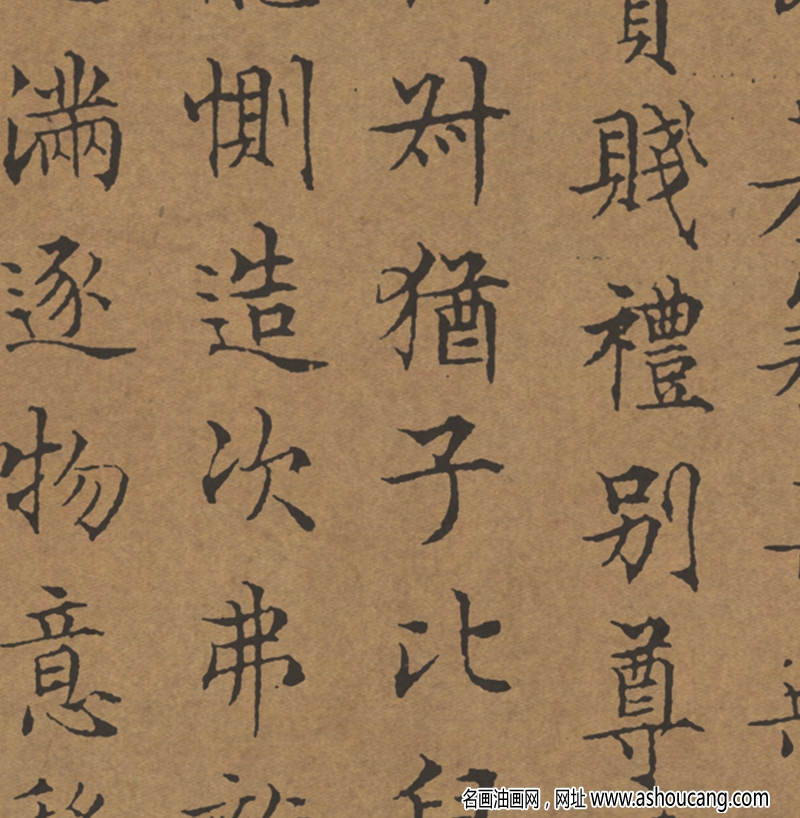 賤禮别尊
叔猶子比
惻造次弗
滿逐物意
名画油画网，网址 www.ashoucang.com